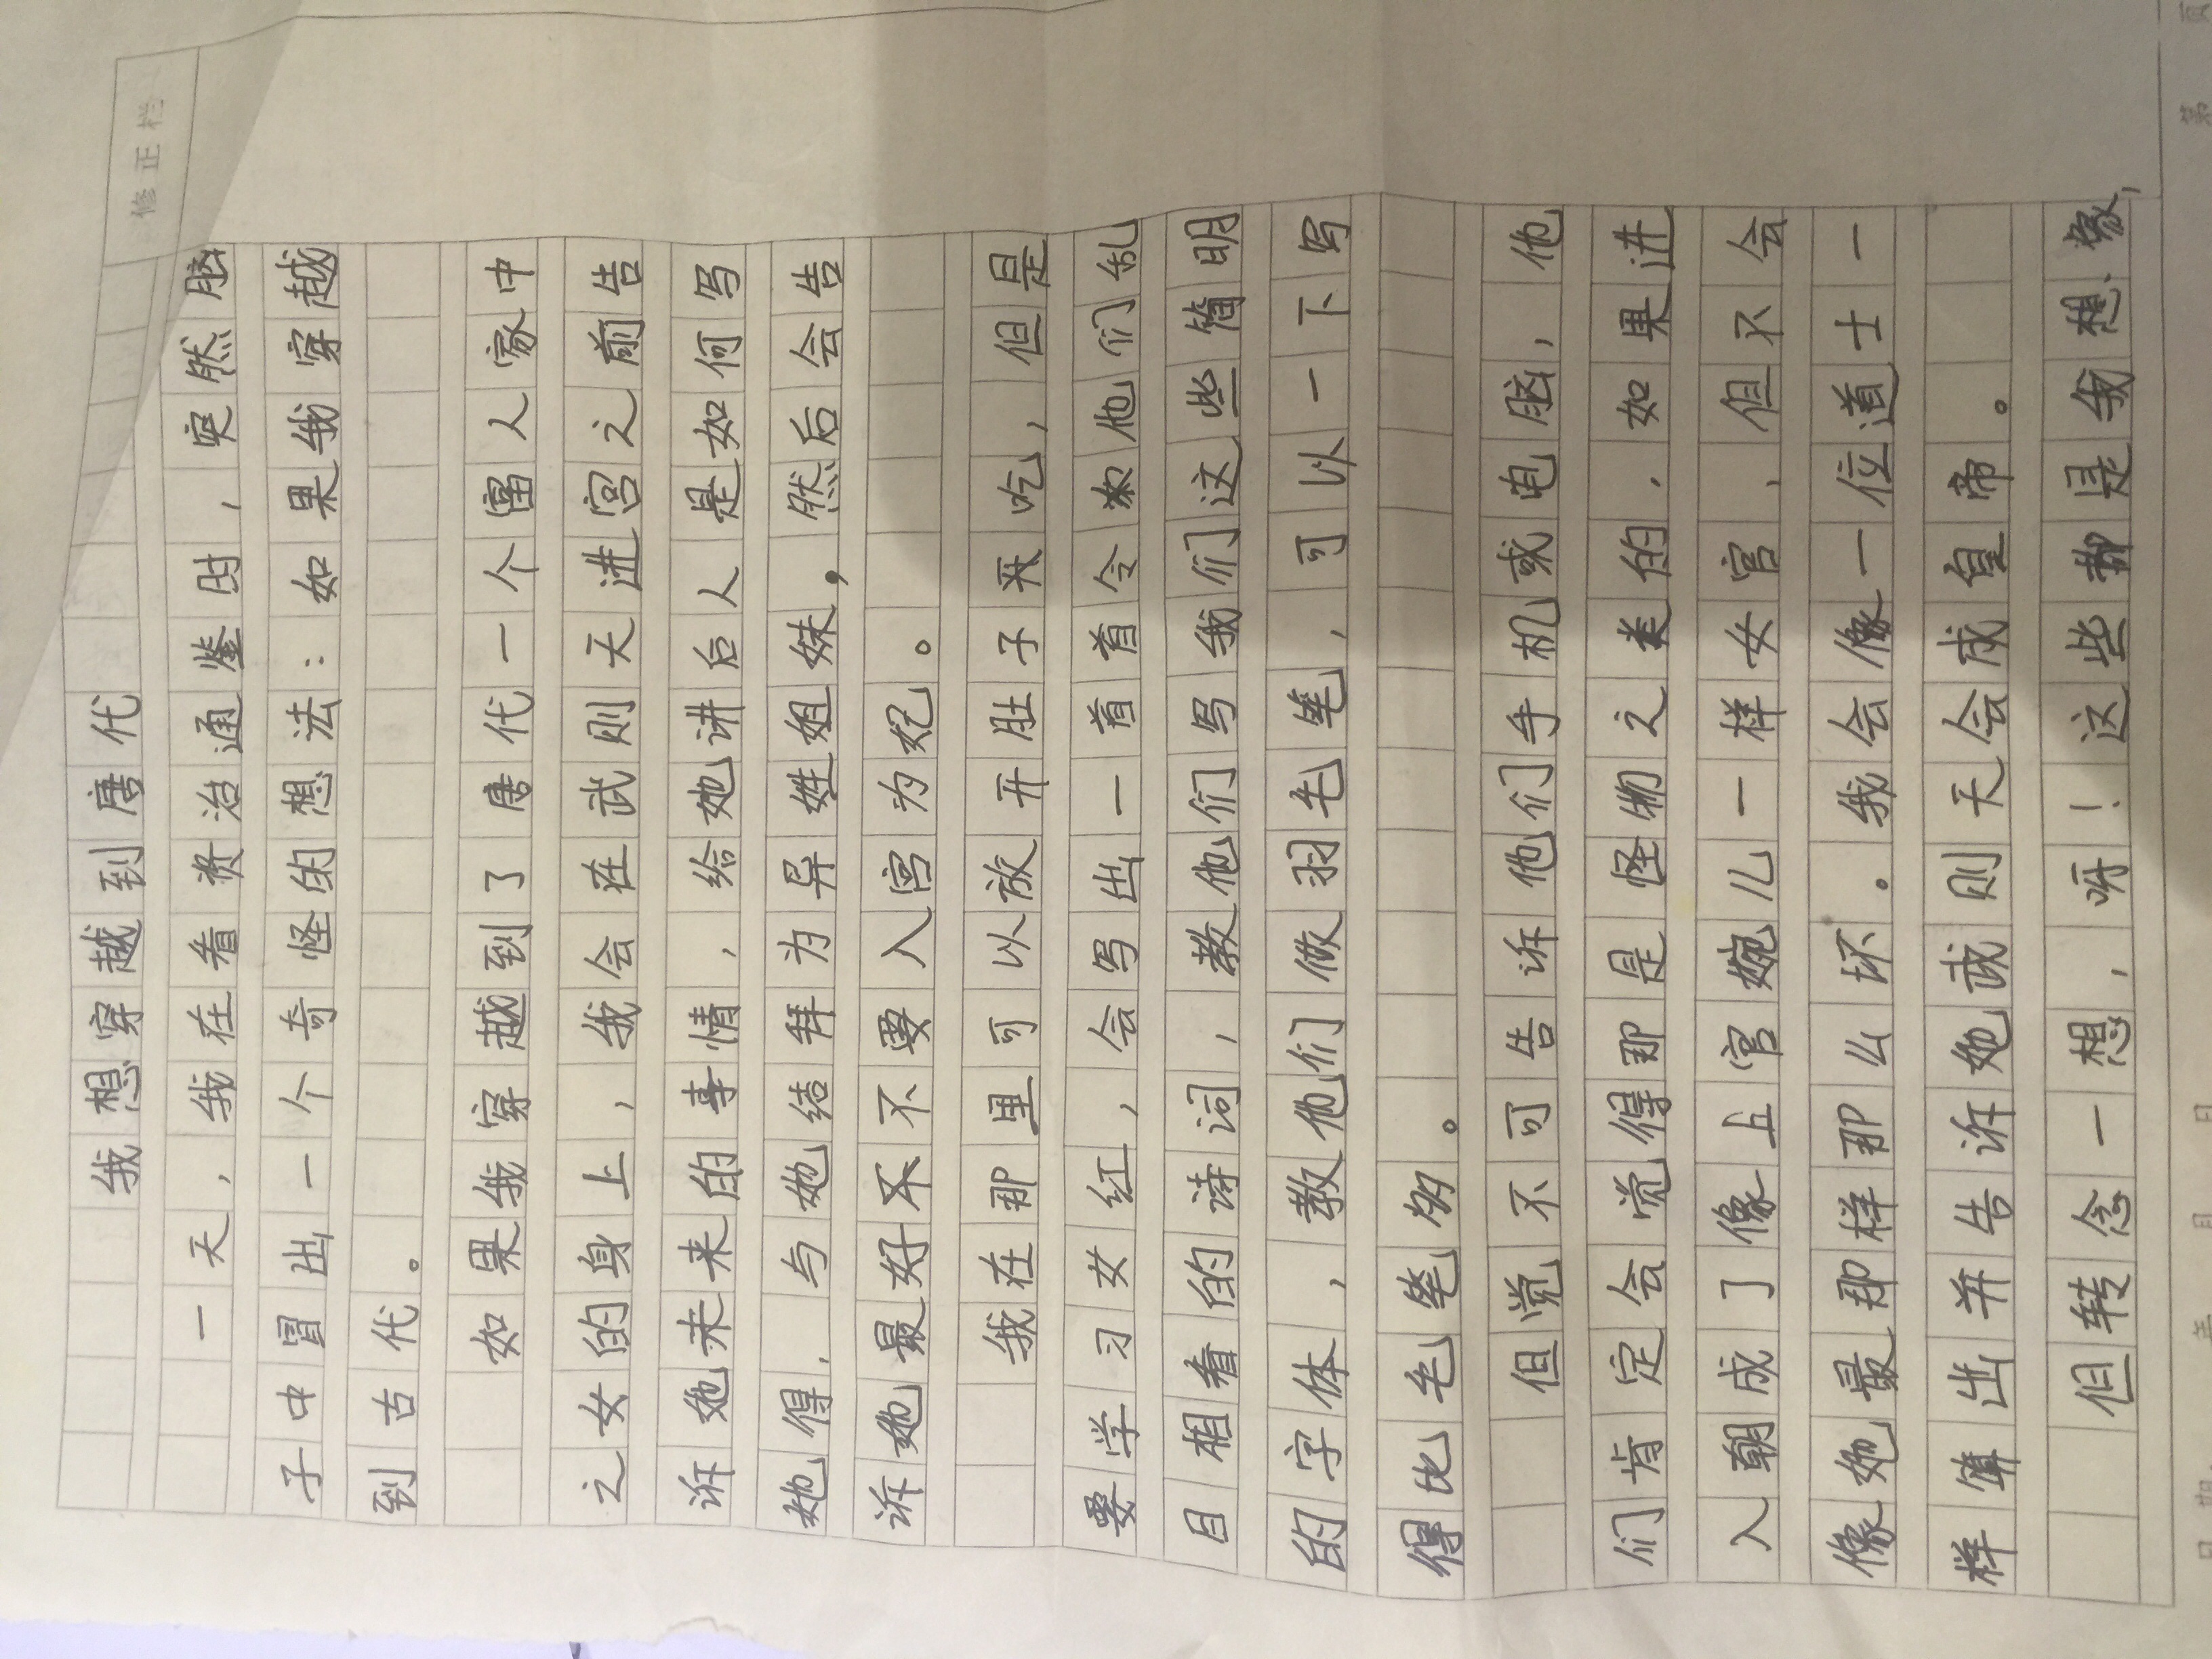 修正栏
我想穿越到唐代
一天，我在看资治通鉴时，突然脑
子中冒出一个奇怪的想法：如果我穿越
到古代。
如果我穿越到了唐代一个富人家中
之女的身上，我会在武则天进宫之前告
诉她未来的事情，给她讲后人是如何写
她得，与她结拜为异姓姐妹，然后会告
诉她最好不不要入宫为妃。
我在那里可以放开肚子吃，但是
要学习女红，会写出一首首令他们乱
目相看的诗词，教他们写我们这些简明
的字体，教他们做羽毛笔，可以一下写
得比毛笔多。
但觉不可告诉他们手机或电脑，他
们肯定会觉得那是怪物之类的，如果进
入朝成了像上官婉儿一样女官，但不会
像她最那样那么坏。我会像一位道士一
样算出并告诉她武则天会成皇帝。
但转念一想，呀！这些都是我想象，
日期： 年 月 日
第 页